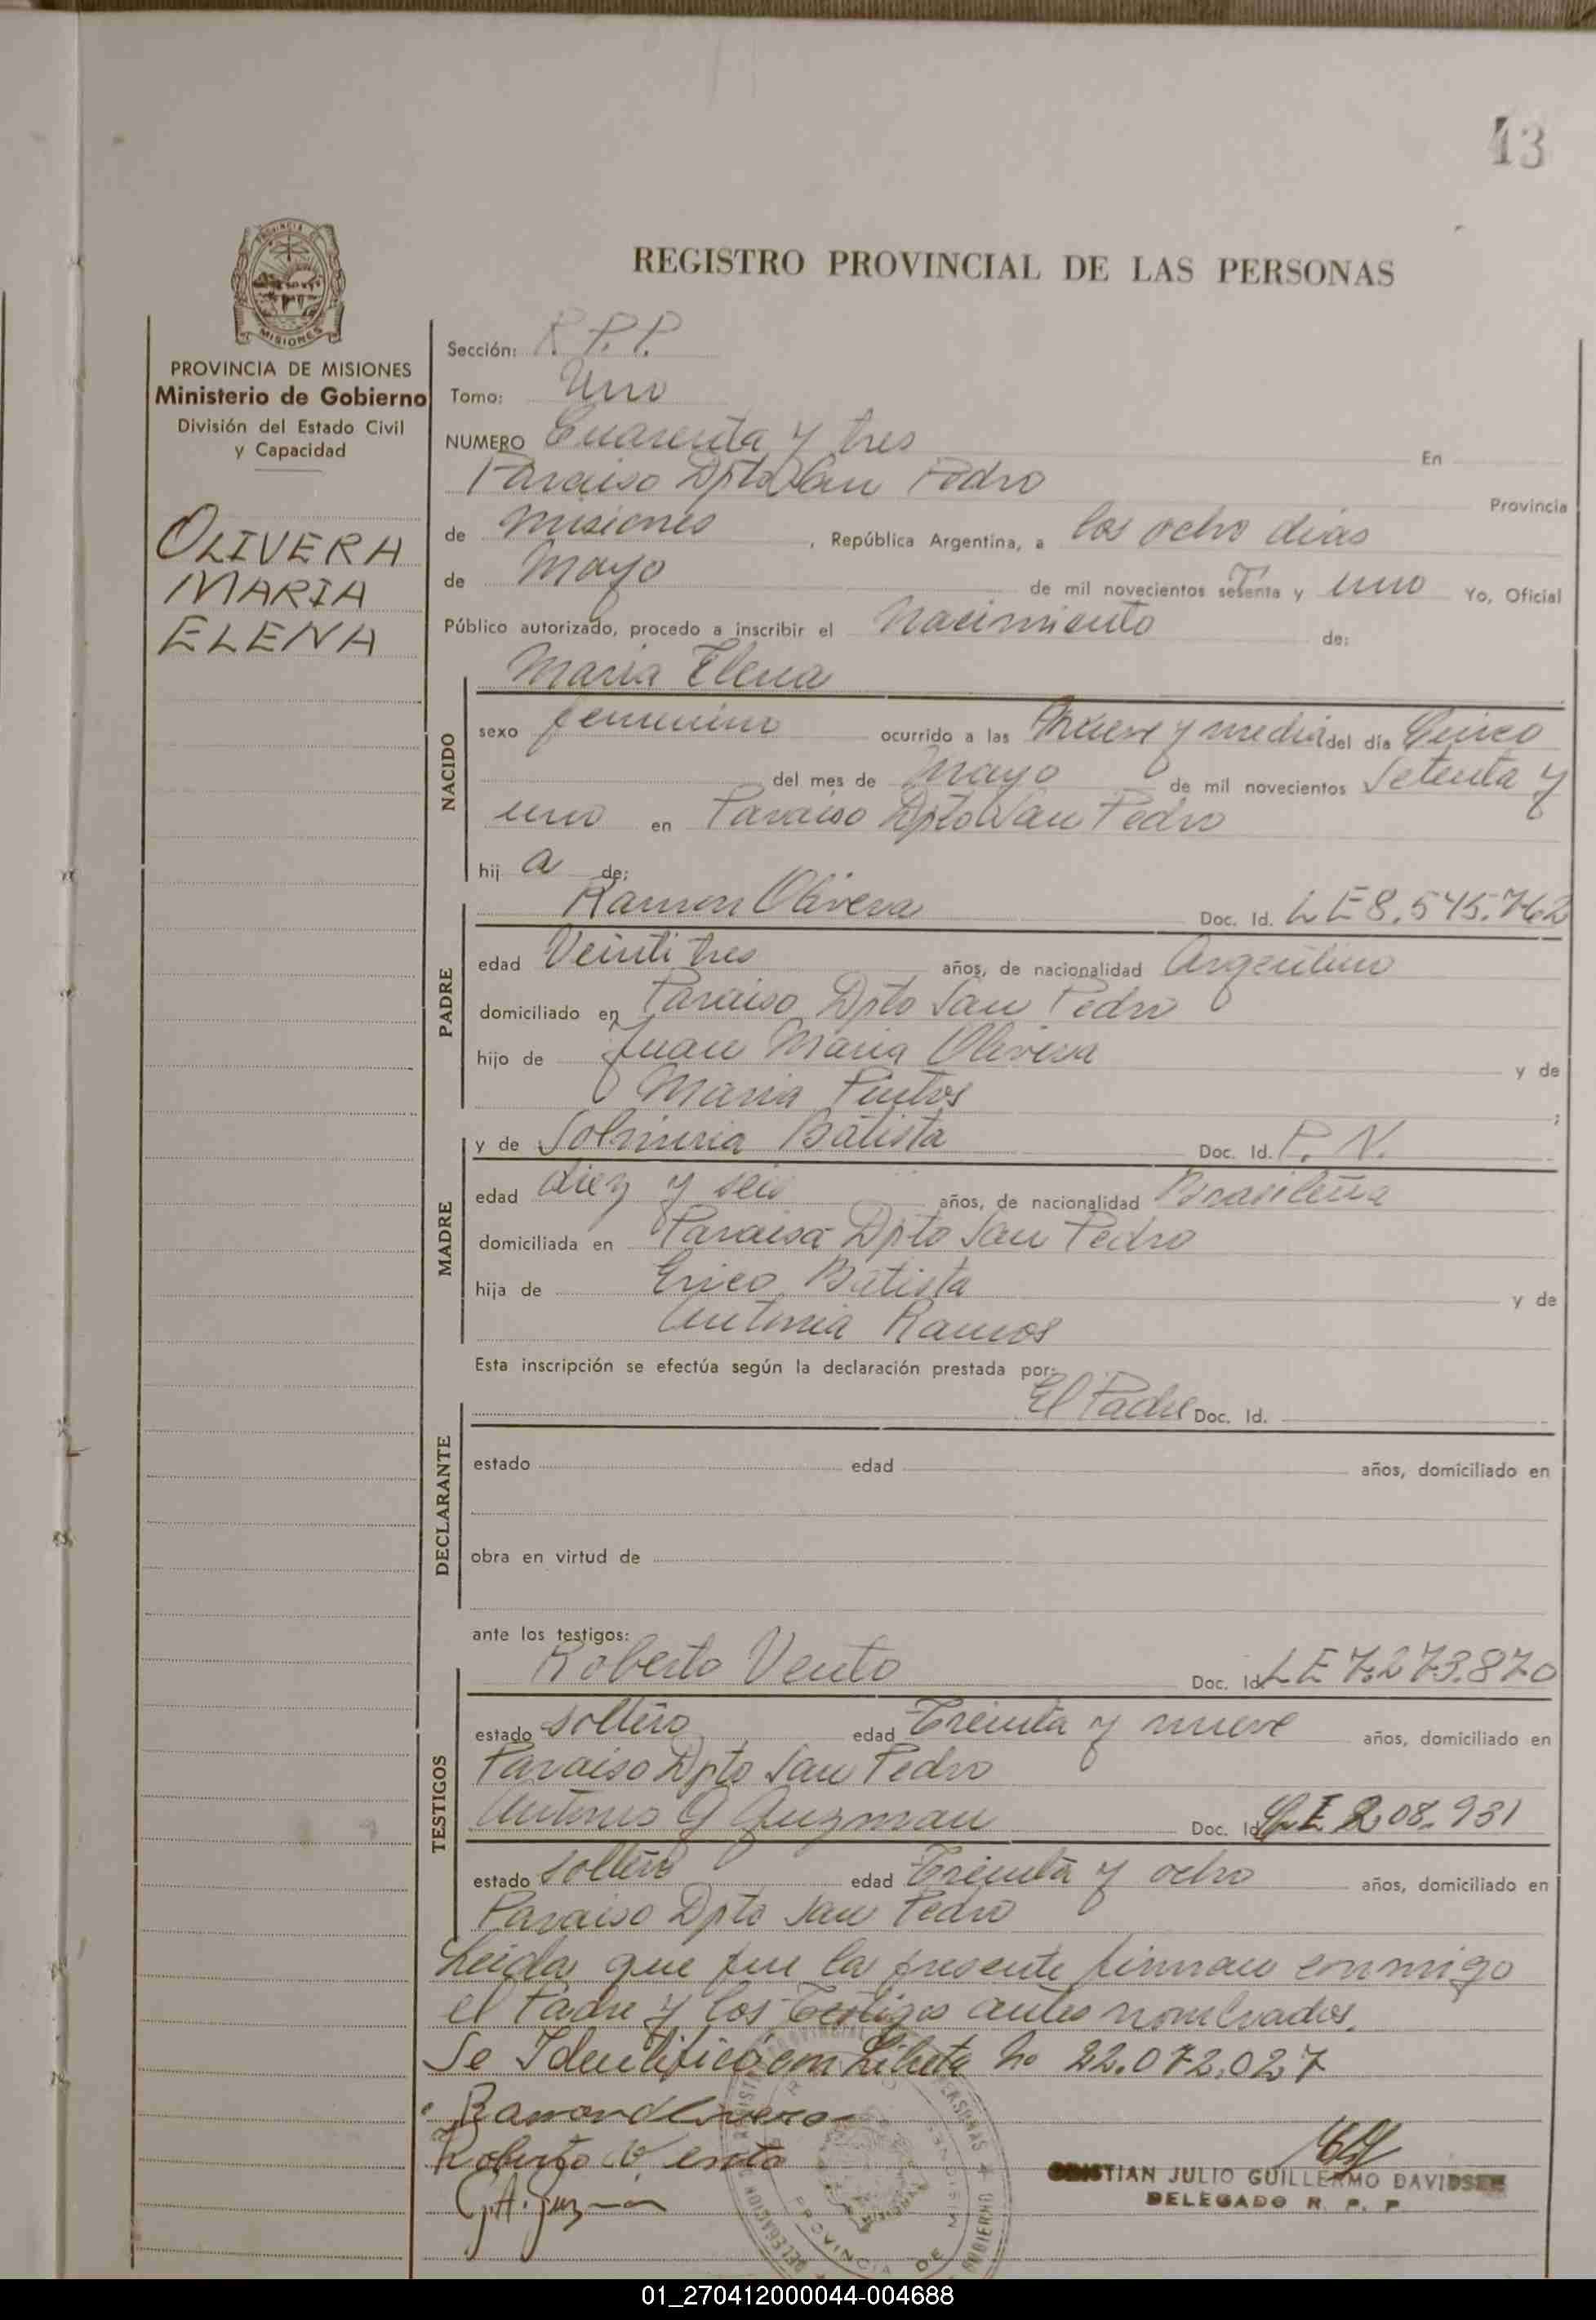 43
REGISTRO PROVINCIAL DE LAS PERSONAS
PROVINCIA DE MISIONES
Ministerio de Gobierno
División del Estado Civil
y Capacidad
OLIVERA
MARIA
ELENA
Sección: R.P.P.
Tomo: Uno
NUMERO Cuarenta y tres En
Paraiso Dpto San Pedro Provincia
de Misiones, República Argentina, a los ocho dias
de Mayo de mil novecientos setenta y uno Yo, Oficial
Público autorizado, procedo a inscribir el Nacimiento de:
Maria Elena
NACIDO
sexo femenino ocurrido a las nueve y media del día Cinco
del mes de Mayo de mil novecientos Setenta y
uno en Paraiso Dpto San Pedro
hij a de:
Ramon Olivera Doc. Id. LE 8.545.762
PADRE
edad Veinti tres años, de nacionalidad Argentino
domiciliado en Paraiso Dpto San Pedro
hijo de Juan Maria Olivera y de
Maria Pintos ;
y de Batista Doc. Id. P. N.
MADRE
edad diez y seis años, de nacionalidad Brasileña
domiciliada en Paraiso Dpto San Pedro
hija de Erico Batista y de
Antonia Ramos
Esta inscripción se efectúa según la declaración prestada por:
El Padre Doc. Id.
DECLARANTE
estado edad años, domiciliado en
obra en virtud de
ante los testigos:
Roberto Vento Doc. Id. LE 7.273.870
TESTIGOS
estado soltero edad Treinta y nueve años, domiciliado en
Paraiso Dpto San Pedro
Antonio G Guzman Doc. Id. 08.931
estado soltero edad Treinta y ocho años, domiciliado en
Paraiso Dpto San Pedro
Leida que fue la presente firman conmigo
el Padre y los Testigos antes nombrados.
Se Identificó con Libreta No 22.072.027
Ramon Olivera
Roberto Vento
G.A. Guzman
CRISTIAN JULIO GUILLERMO DAVIDSEN
DELEGADO R. P. P.
01_270412000044-004688